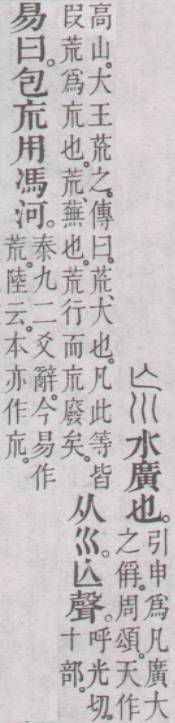 巟 水廣也。
引申爲凡廣大
之偁。周頌。天作
高山。大王荒之。傳曰。荒、大也。凡此等皆
叚荒爲巟也。荒、蕪也。荒行而巟廢矣。
从巛。亡聲。
呼光切。
十部。
易曰。包巟用馮河。
泰九二爻辭。今易作
荒。陸云。本亦作巟。